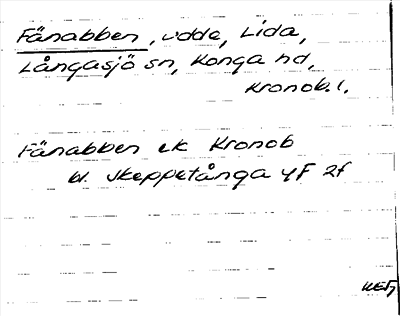 Fänabben, udde, Lida,
Långasjö sn, Konga hd,
Kronob. l.
Fänabben ek Kronob
bl. Skeppetånga 4F 2f